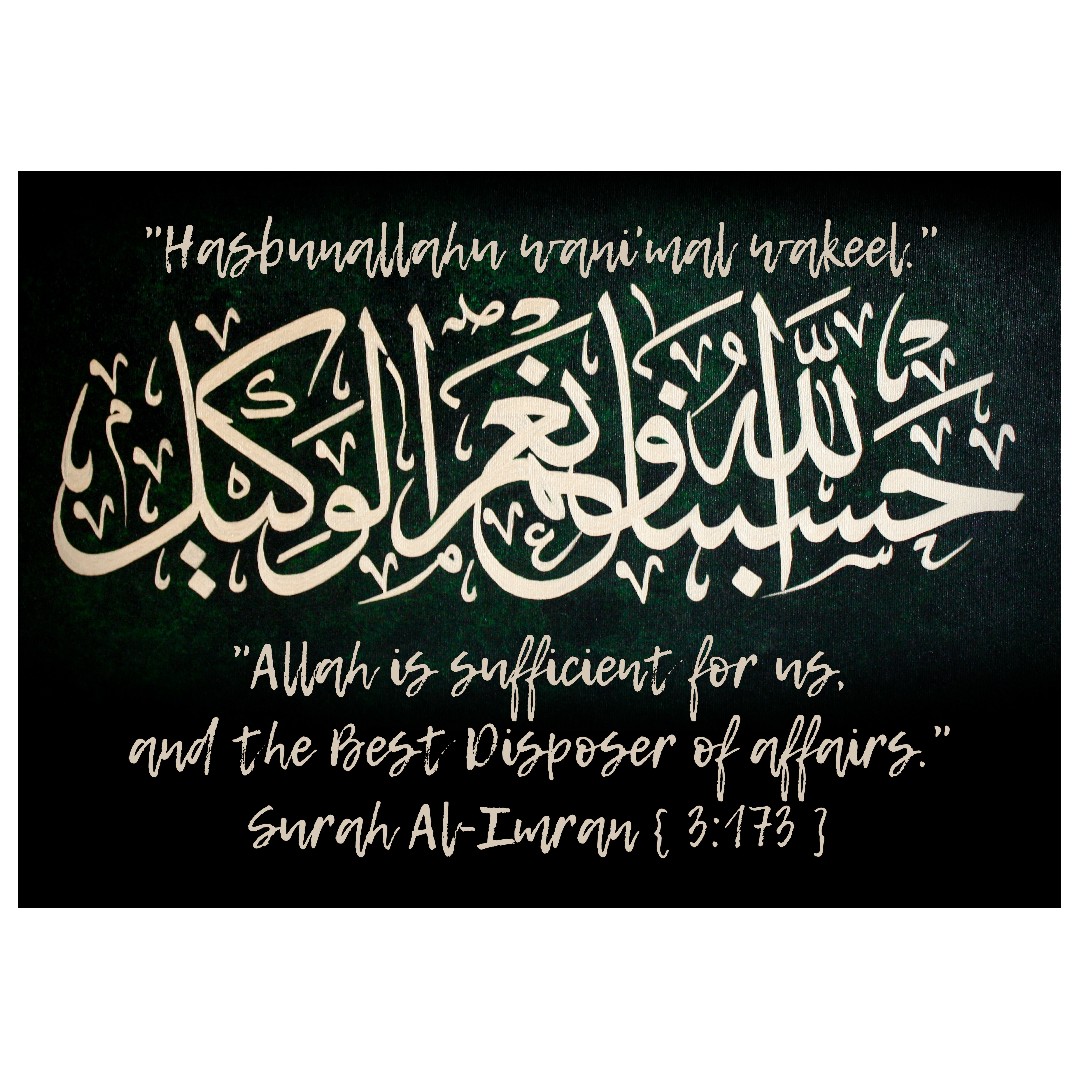 "Hasbunallahu wani'mal wakeel."
حسبنا الله ونعم الوكيل
"Allah is sufficient for us,
and the Best Disposer of affairs."
Surah Al-Imran { 3:173 }